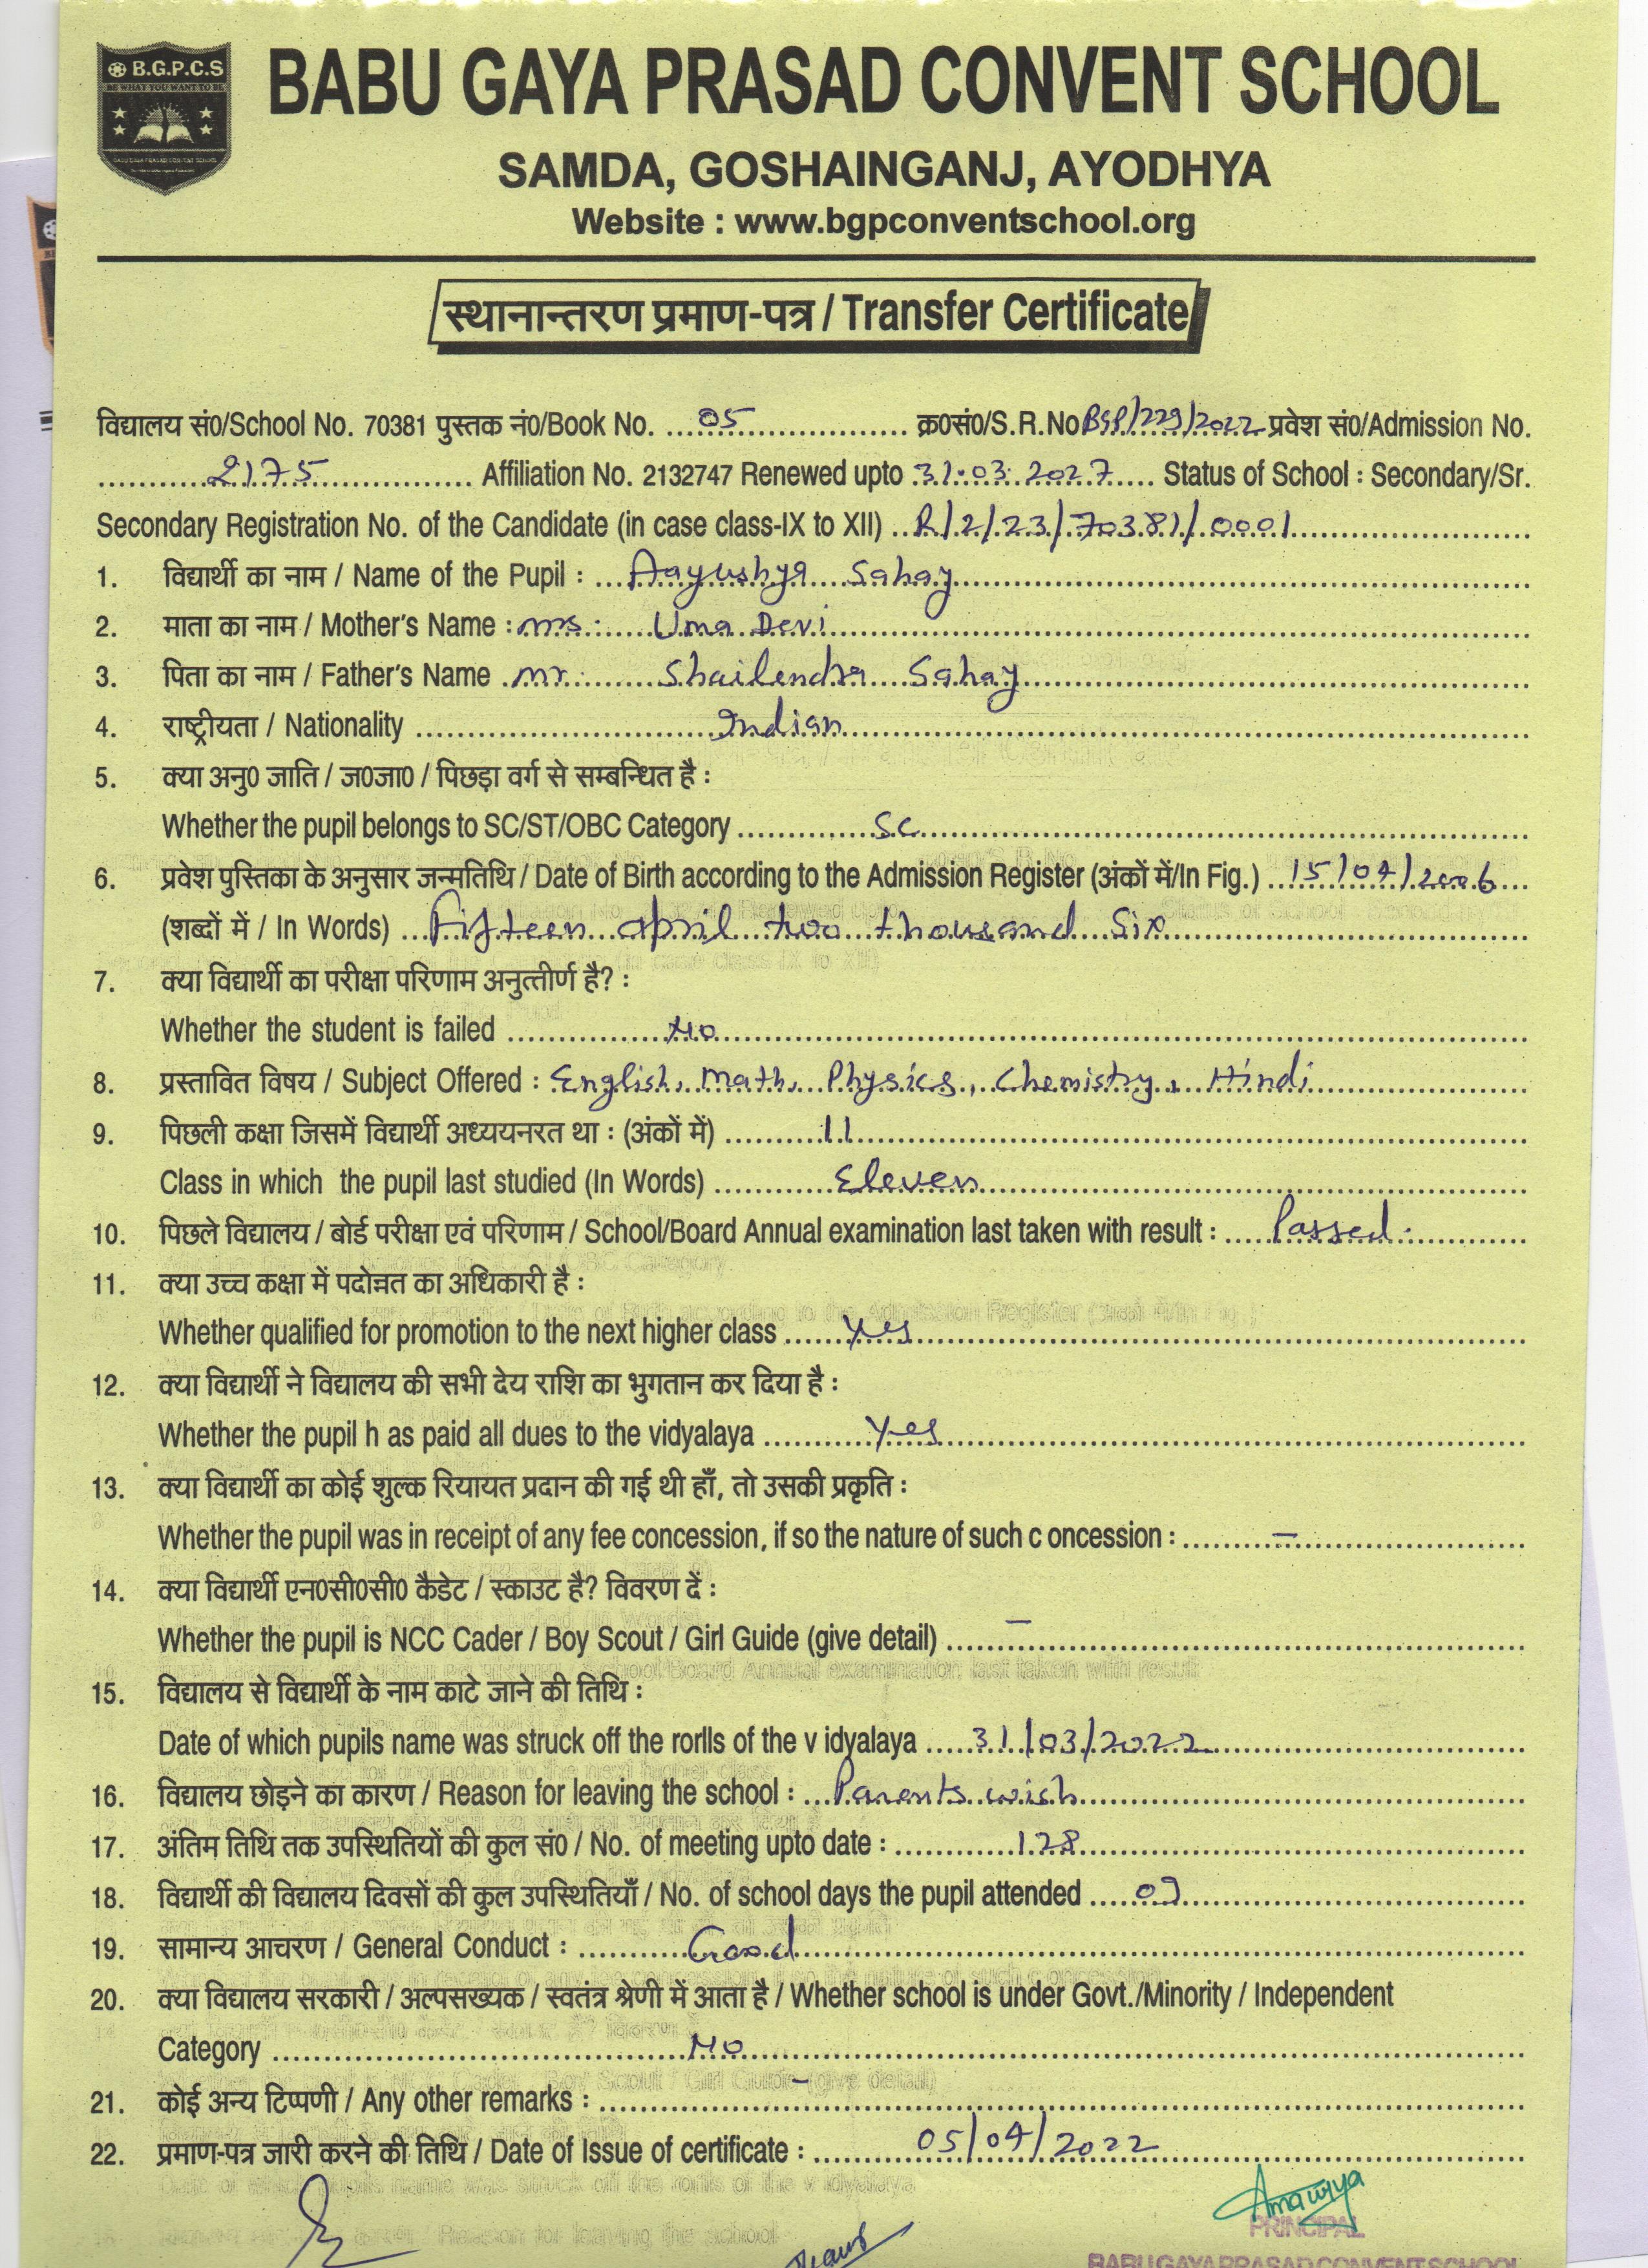 B.G.P.C.S
BE WHAT YOU WANT TO BE
BABU GAYA PRASAD CONVENT SCHOOL
BABU GAYA PRASAD CONVENT SCHOOL
SAMDA, GOSHAINGANJ, AYODHYA
Website : www.bgpconventschool.org
स्थानान्तरण प्रमाण-पत्र / Transfer Certificate
विद्यालय सं0/School No. 70381 पुस्तक नं0/Book No. ...05... क्र0सं0/S.R.No BGP/229/2022 प्रवेश सं0/Admission No.
...2175... Affiliation No. 2132747 Renewed upto 31.03.2027 ... Status of School : Secondary/Sr.
Secondary Registration No. of the Candidate (in case class-IX to XII) ..R/2/23/70381/0001...
1. विद्यार्थी का नाम / Name of the Pupil : ...Aayushya Sahay...
2. माता का नाम / Mother's Name : mrs. Uma Devi...
3. पिता का नाम / Father's Name .mr. Shailendra Sahay...
4. राष्ट्रीयता / Nationality ...Indian...
5. क्या अनु0 जाति / ज0जा0 / पिछड़ा वर्ग से सम्बन्धित है :
Whether the pupil belongs to SC/ST/OBC Category ...SC...
6. प्रवेश पुस्तिका के अनुसार जन्मतिथि / Date of Birth according to the Admission Register (अंकों में/In Fig.) ..15/04/2006...
(शब्दों में / In Words) ...Fifteen april two thousand Six...
7. क्या विद्यार्थी का परीक्षा परिणाम अनुत्तीर्ण है? :
Whether the student is failed ...No...
8. प्रस्तावित विषय / Subject Offered : English, Math, Physics, Chemistry, Hindi...
9. पिछली कक्षा जिसमें विद्यार्थी अध्ययनरत था : (अंकों में) ...11...
Class in which the pupil last studied (In Words) ...Eleven...
10. पिछले विद्यालय / बोर्ड परीक्षा एवं परिणाम / School/Board Annual examination last taken with result : ...Passed...
11. क्या उच्च कक्षा में पदोन्नत का अधिकारी है :
Whether qualified for promotion to the next higher class ...Yes...
12. क्या विद्यार्थी ने विद्यालय की सभी देय राशि का भुगतान कर दिया है :
Whether the pupil h as paid all dues to the vidyalaya ...Yes...
13. क्या विद्यार्थी का कोई शुल्क रियायत प्रदान की गई थी हाँ, तो उसकी प्रकृति :
Whether the pupil was in receipt of any fee concession, if so the nature of such c oncession : ...–...
14. क्या विद्यार्थी एन0सी0सी0 कैडेट / स्काउट है? विवरण दें :
Whether the pupil is NCC Cader / Boy Scout / Girl Guide (give detail) ...–...
15. विद्यालय से विद्यार्थी के नाम काटे जाने की तिथि :
Date of which pupils name was struck off the rorlls of the v idyalaya ...31/03/2022...
16. विद्यालय छोड़ने का कारण / Reason for leaving the school : ...Parents wish...
17. अंतिम तिथि तक उपस्थितियों की कुल सं0 / No. of meeting upto date : ...128...
18. विद्यार्थी की विद्यालय दिवसों की कुल उपस्थितियाँ / No. of school days the pupil attended
19. सामान्य आचरण / General Conduct : ...Good...
20. क्या विद्यालय सरकारी / अल्पसख्यक / स्वतंत्र श्रेणी में आता है / Whether school is under Govt./Minority / Independent
Category ...No...
21. कोई अन्य टिप्पणी / Any other remarks : ...–...
22. प्रमाण-पत्र जारी करने की तिथि / Date of Issue of certificate : ...05/04/2022
PRINCIPAL
BABU GAYA PRASAD CONVENT SCHOOL